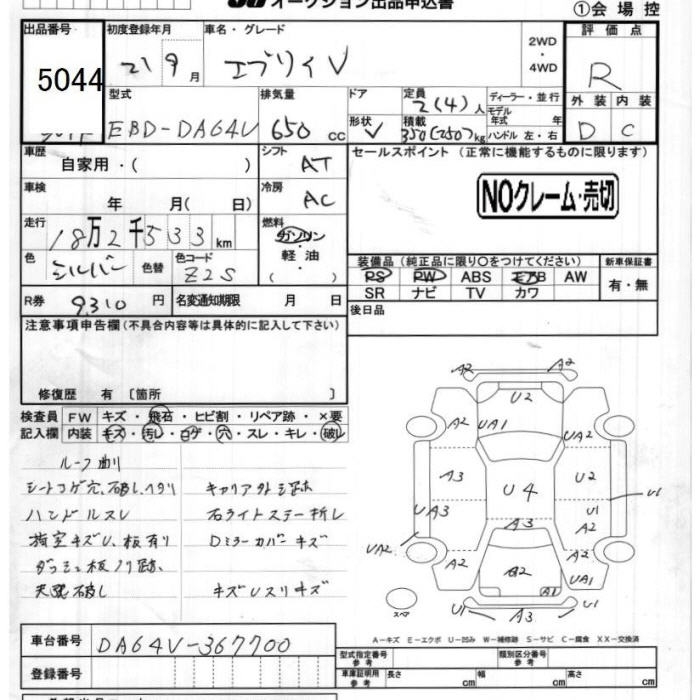 オークション出品申込書
①会場控
出品番号 初度登録年月 車名・グレード 2WD ・ 4WD 評価点
5044 21 9月 エブリィV R
型式 排気量 ドア 定員 ディーラー・並行 外装 内装
EBD-DA64V 650 cc 2(4)人 モデル年式 年 D C
形状 V 積載 350(250)kg ハンドル 左・右
車歴 自家用・( ) シフト AT セールスポイント (正常に機能するものに限ります)
車検 年 月( 日) 冷房 AC NOクレーム・売切
走行 18万2千533km 燃料 ガソリン・軽油・( )
色 シルバー 色替 色コード Z2S
装備品 (純正品に限り○をつけてください) 新車保証書
PS PW ABS エアB AW 有・無
SR ナビ TV カワ
R券 9,310円 名変通知期限 月 日 後日品
注意事項申告欄(不具合内容等は具体的に記入して下さい)
修復歴 有 〔箇所 〕
検査員 FW キズ・飛石・ヒビ割・リペア跡・×要
記入欄 内装 キズ・汚レ・コゲ・穴・スレ・キレ・破レ
ルーフ曲り
シートコゲ穴、破レ、ヘタリ
ハンドルスレ 右ライトステー折レ
荷室キズU、板有り Dミラーカバーキズ
天張破レ キズUスリキズ
A2 A2
U2
A2 UA1 UA2
A3 U4 U2
UA3 U1 U1
A3 A2
UA2 A2 A2
A1 UA1
スペア U1 A3 U1
A-キズ E-エクボ U-凹み W-補修跡 S-サビ C-腐食 XX-交換済
車台番号 DA64V-367700
登録番号
型式指定番号 参考 類別区分番号 参考
車庫証明用 参考 長さ cm 幅 cm 高さ cm